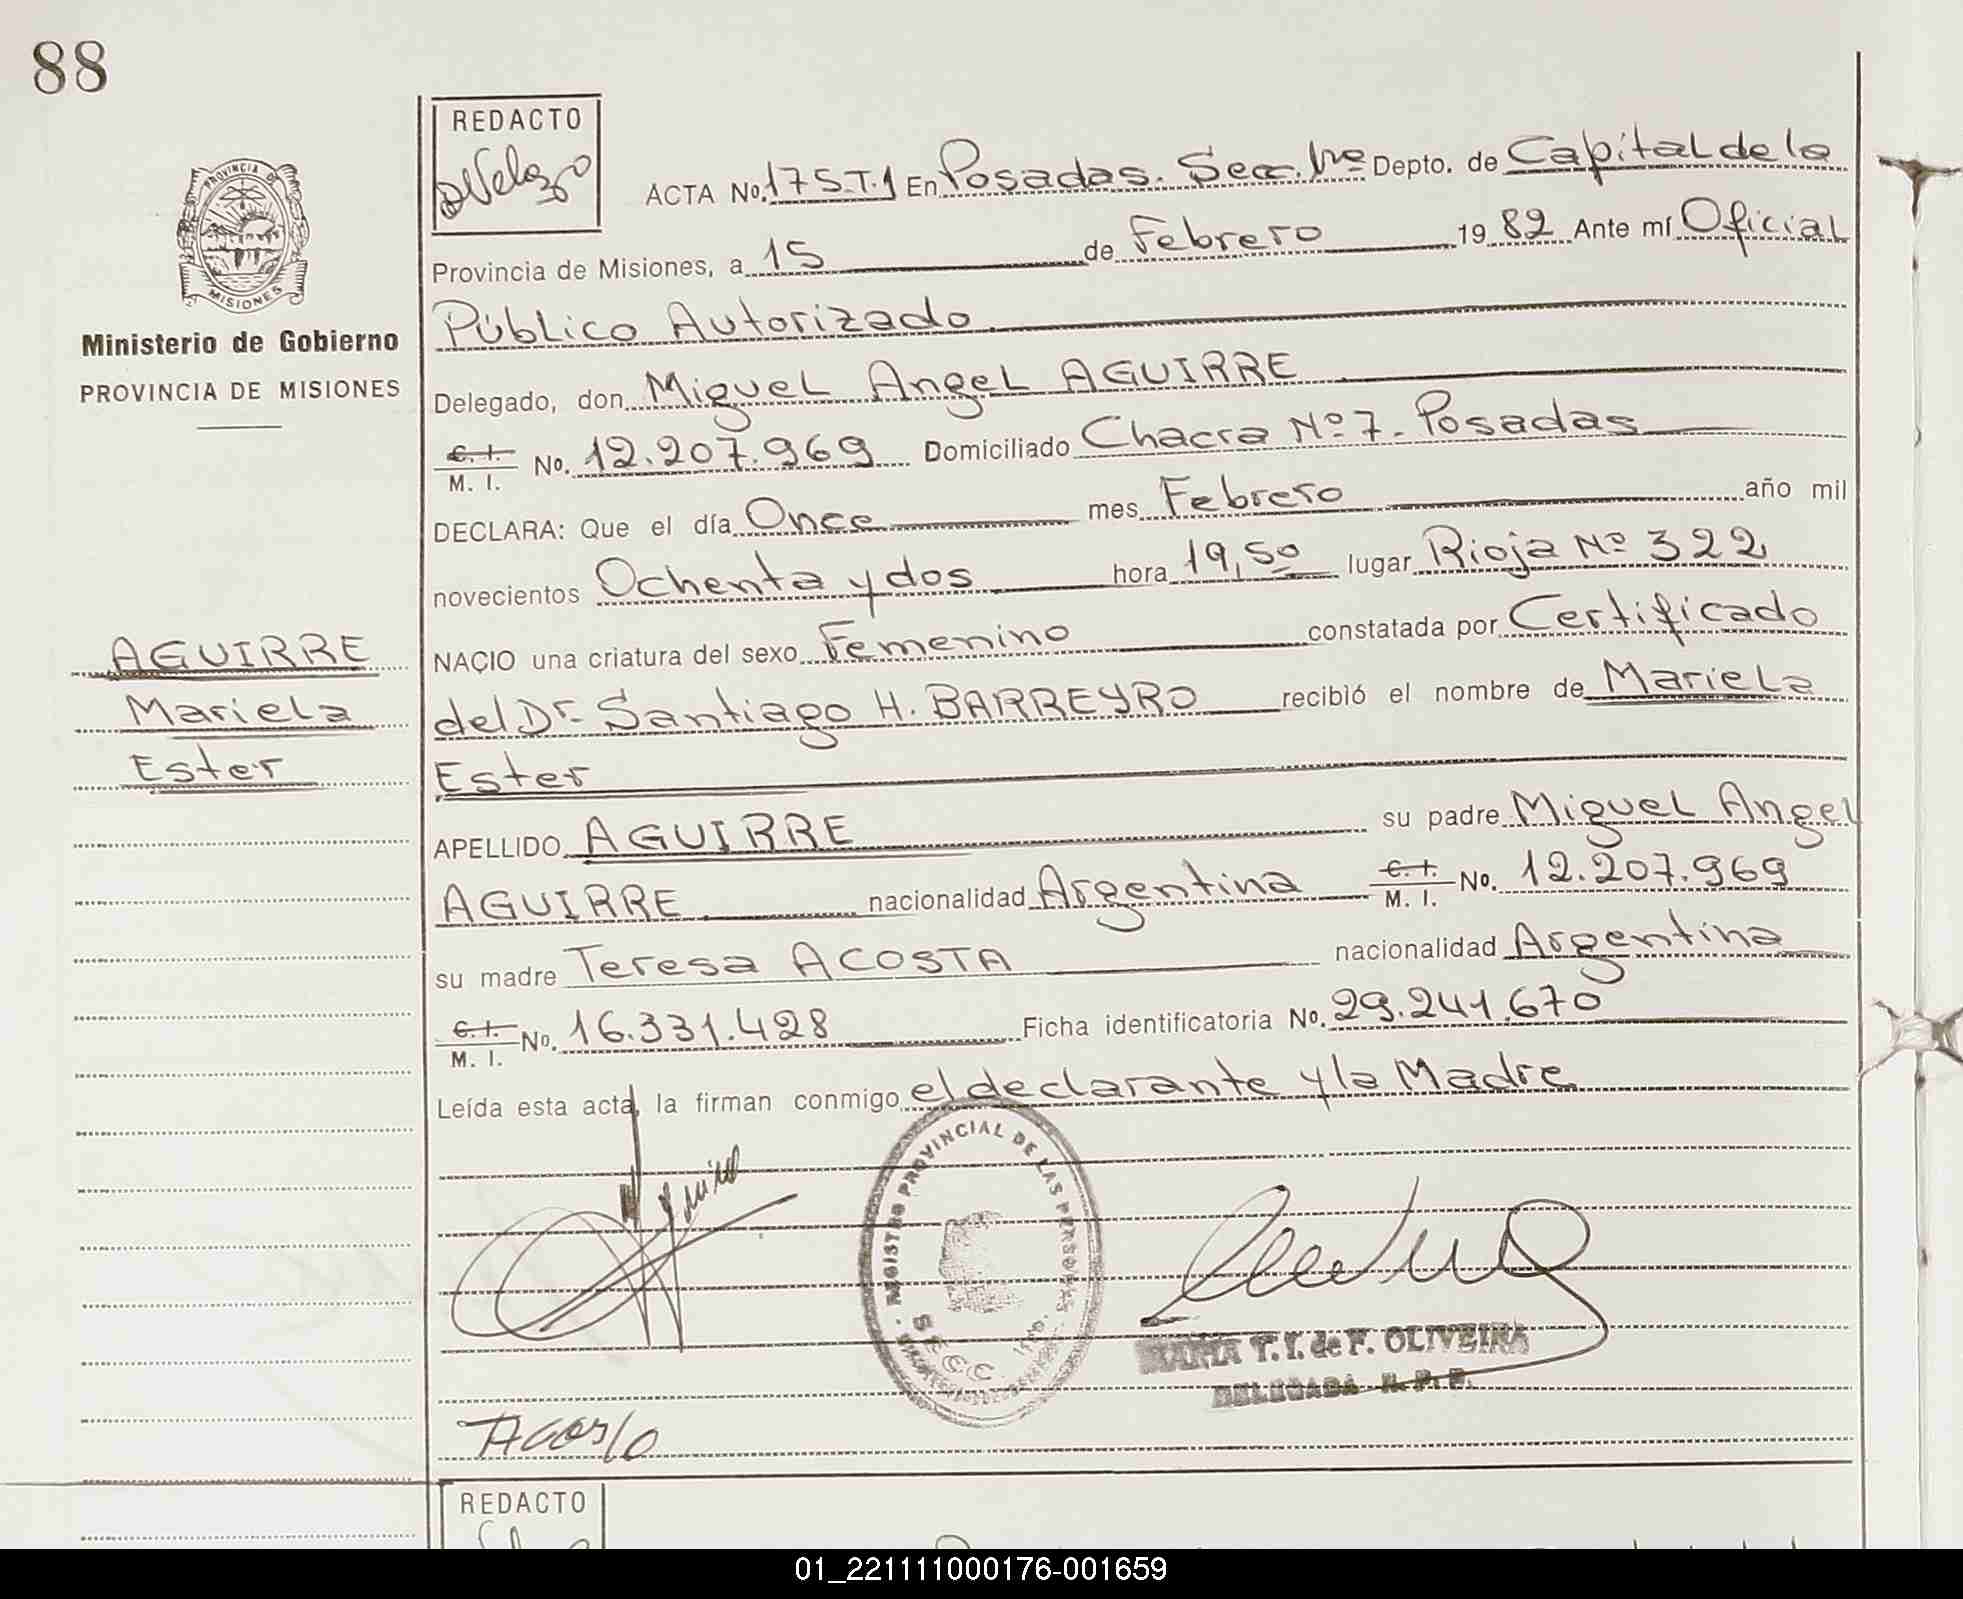 88
REDACTO
PROVINCIA DE
MISIONES
Ministerio de Gobierno
PROVINCIA DE MISIONES
AGUIRRE
Mariela
Ester
ACTA No. 175.T.1 En Posadas. Secc. 1ra Depto. de Capital de la
Provincia de Misiones, a 15 de Febrero 1982 Ante mí Oficial
Público Autorizado
Delegado, don Miguel Angel AGUIRRE
C. I. M. I. No. 12.207.969 Domiciliado Chacra Nº 7- Posadas
DECLARA: Que el día Once mes Febrero año mil
novecientos Ochenta y dos hora 19,50 lugar Rioja Nº 322
NACIO una criatura del sexo Femenino constatada por Certificado
del Dr. Santiago H. BARREYRO recibió el nombre de Mariela
Ester
APELLIDO AGUIRRE su padre Miguel Angel
AGUIRRE nacionalidad Argentina C. I. M. I. No. 12.207.969
su madre Teresa ACOSTA nacionalidad Argentina
C. I. M. I. No. 16.331.428 Ficha identificatoria No. 29.241.670
Leída esta acta, la firman conmigo el declarante y la Madre
REGISTRO PROVINCIAL DE LAS PERSONAS
SECC
MARIA T. I. de F. OLIVEIRA
DELEGADA R. P. P.
Acosta
REDACTO
01_221111000176-001659